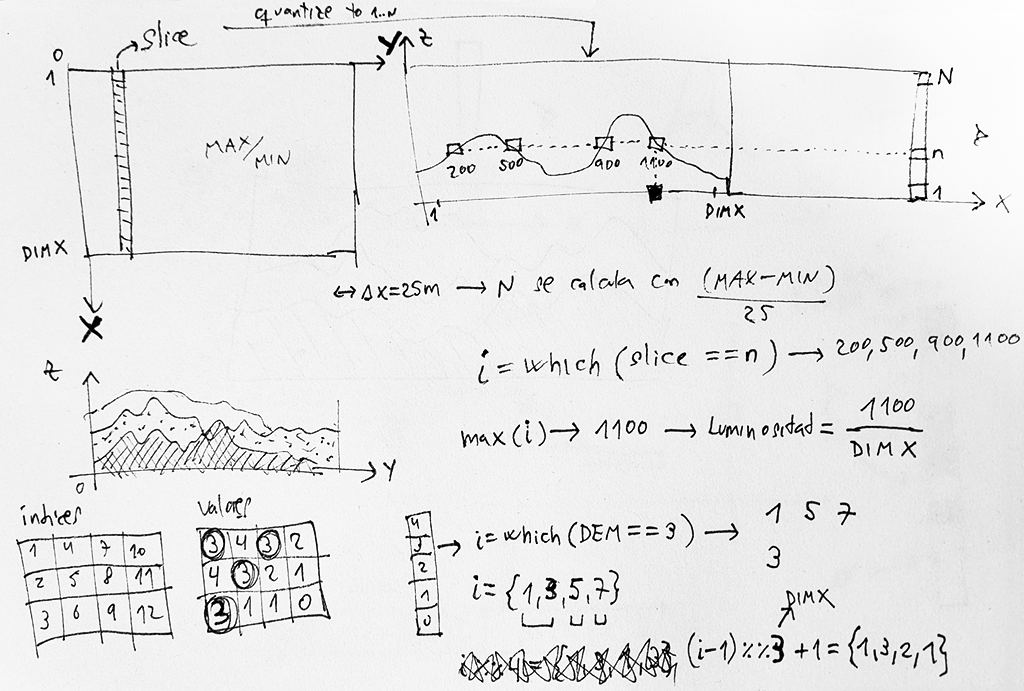 quantize to 1..N
0
1
Slice
Y
MAX/MIN
DIMX
X
Z
N
200 500 900 1100
n
1
1
DIMX
X
↔ ΔX=25m → N se calcula con (MAX-MIN)
25
i = which (slice == n) → 200, 500, 900, 1100
max (i) → 1100 → Luminositad = 1100
DIMX
Z
0
Y
indices
1 4 7 10
2 5 8 11
3 6 9 12
valores
3 4 3 2
4 3 2 1
3 1 1 0
4
3
2
1
0
→ i = which (DEM == 3) → 1 5 7
3
i = {1, 3, 5, 7}
DIMX
(i-1) %% 3 + 1 = {1, 3, 2, 1}